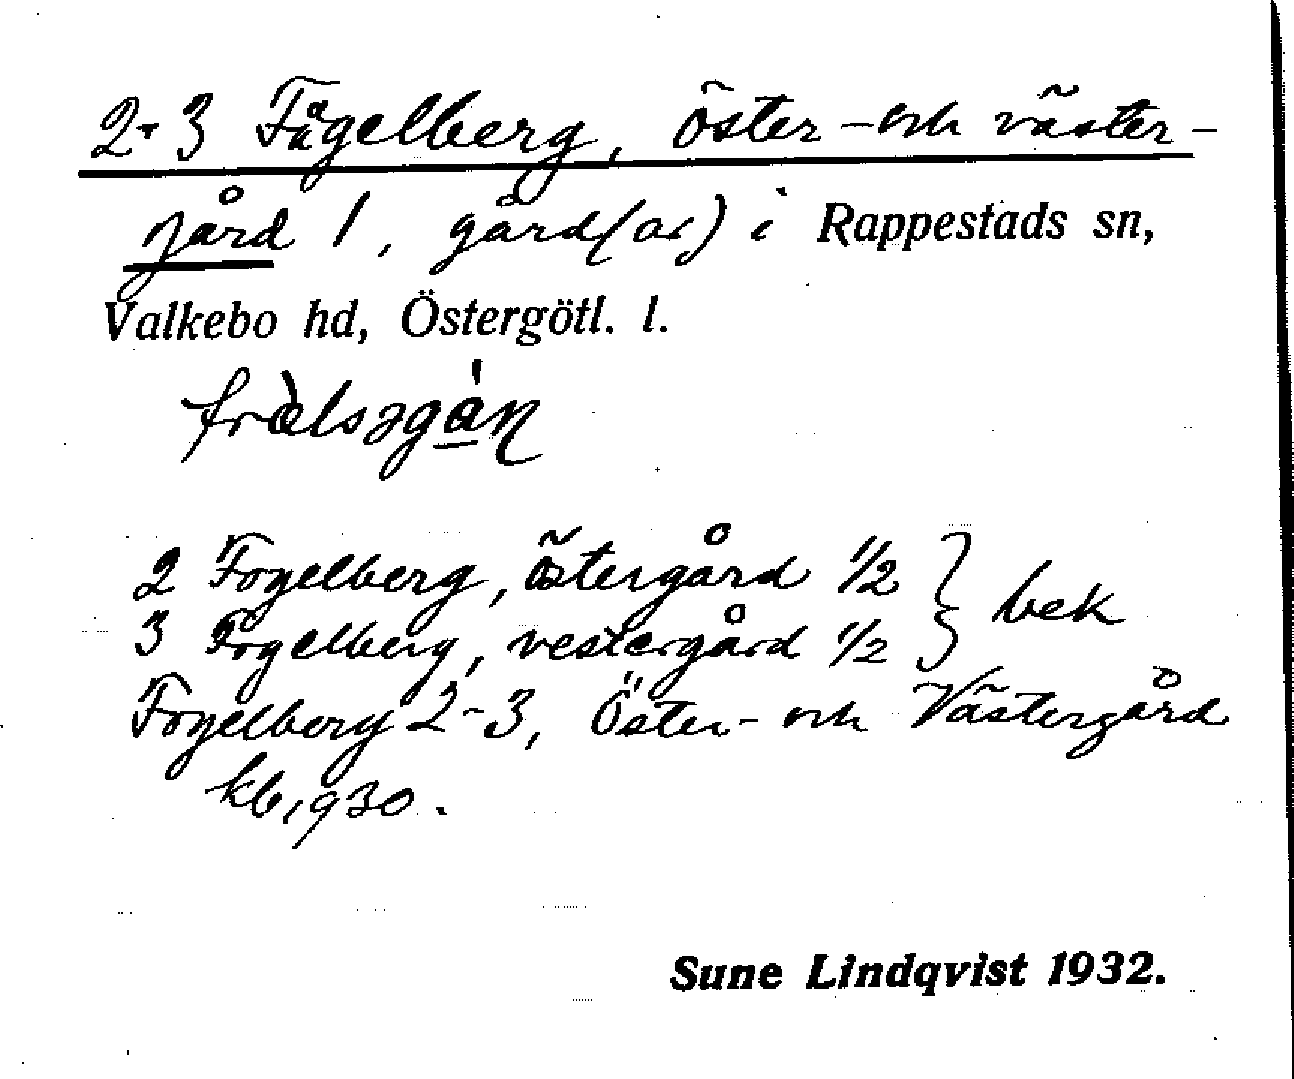 2-3 Fågelberg, öster- och väster-
gård 1, gård(ar) i Rappestads sn,
Valkebo hd, Östergötl. l.
2 Fogelberg, östergård 1/2 } bek
3 Fogelberg, vestergård 1/2
Fogelberg 2-3, Öster- och Västergård
kb. 1930.
Sune Lindqvist 1932.